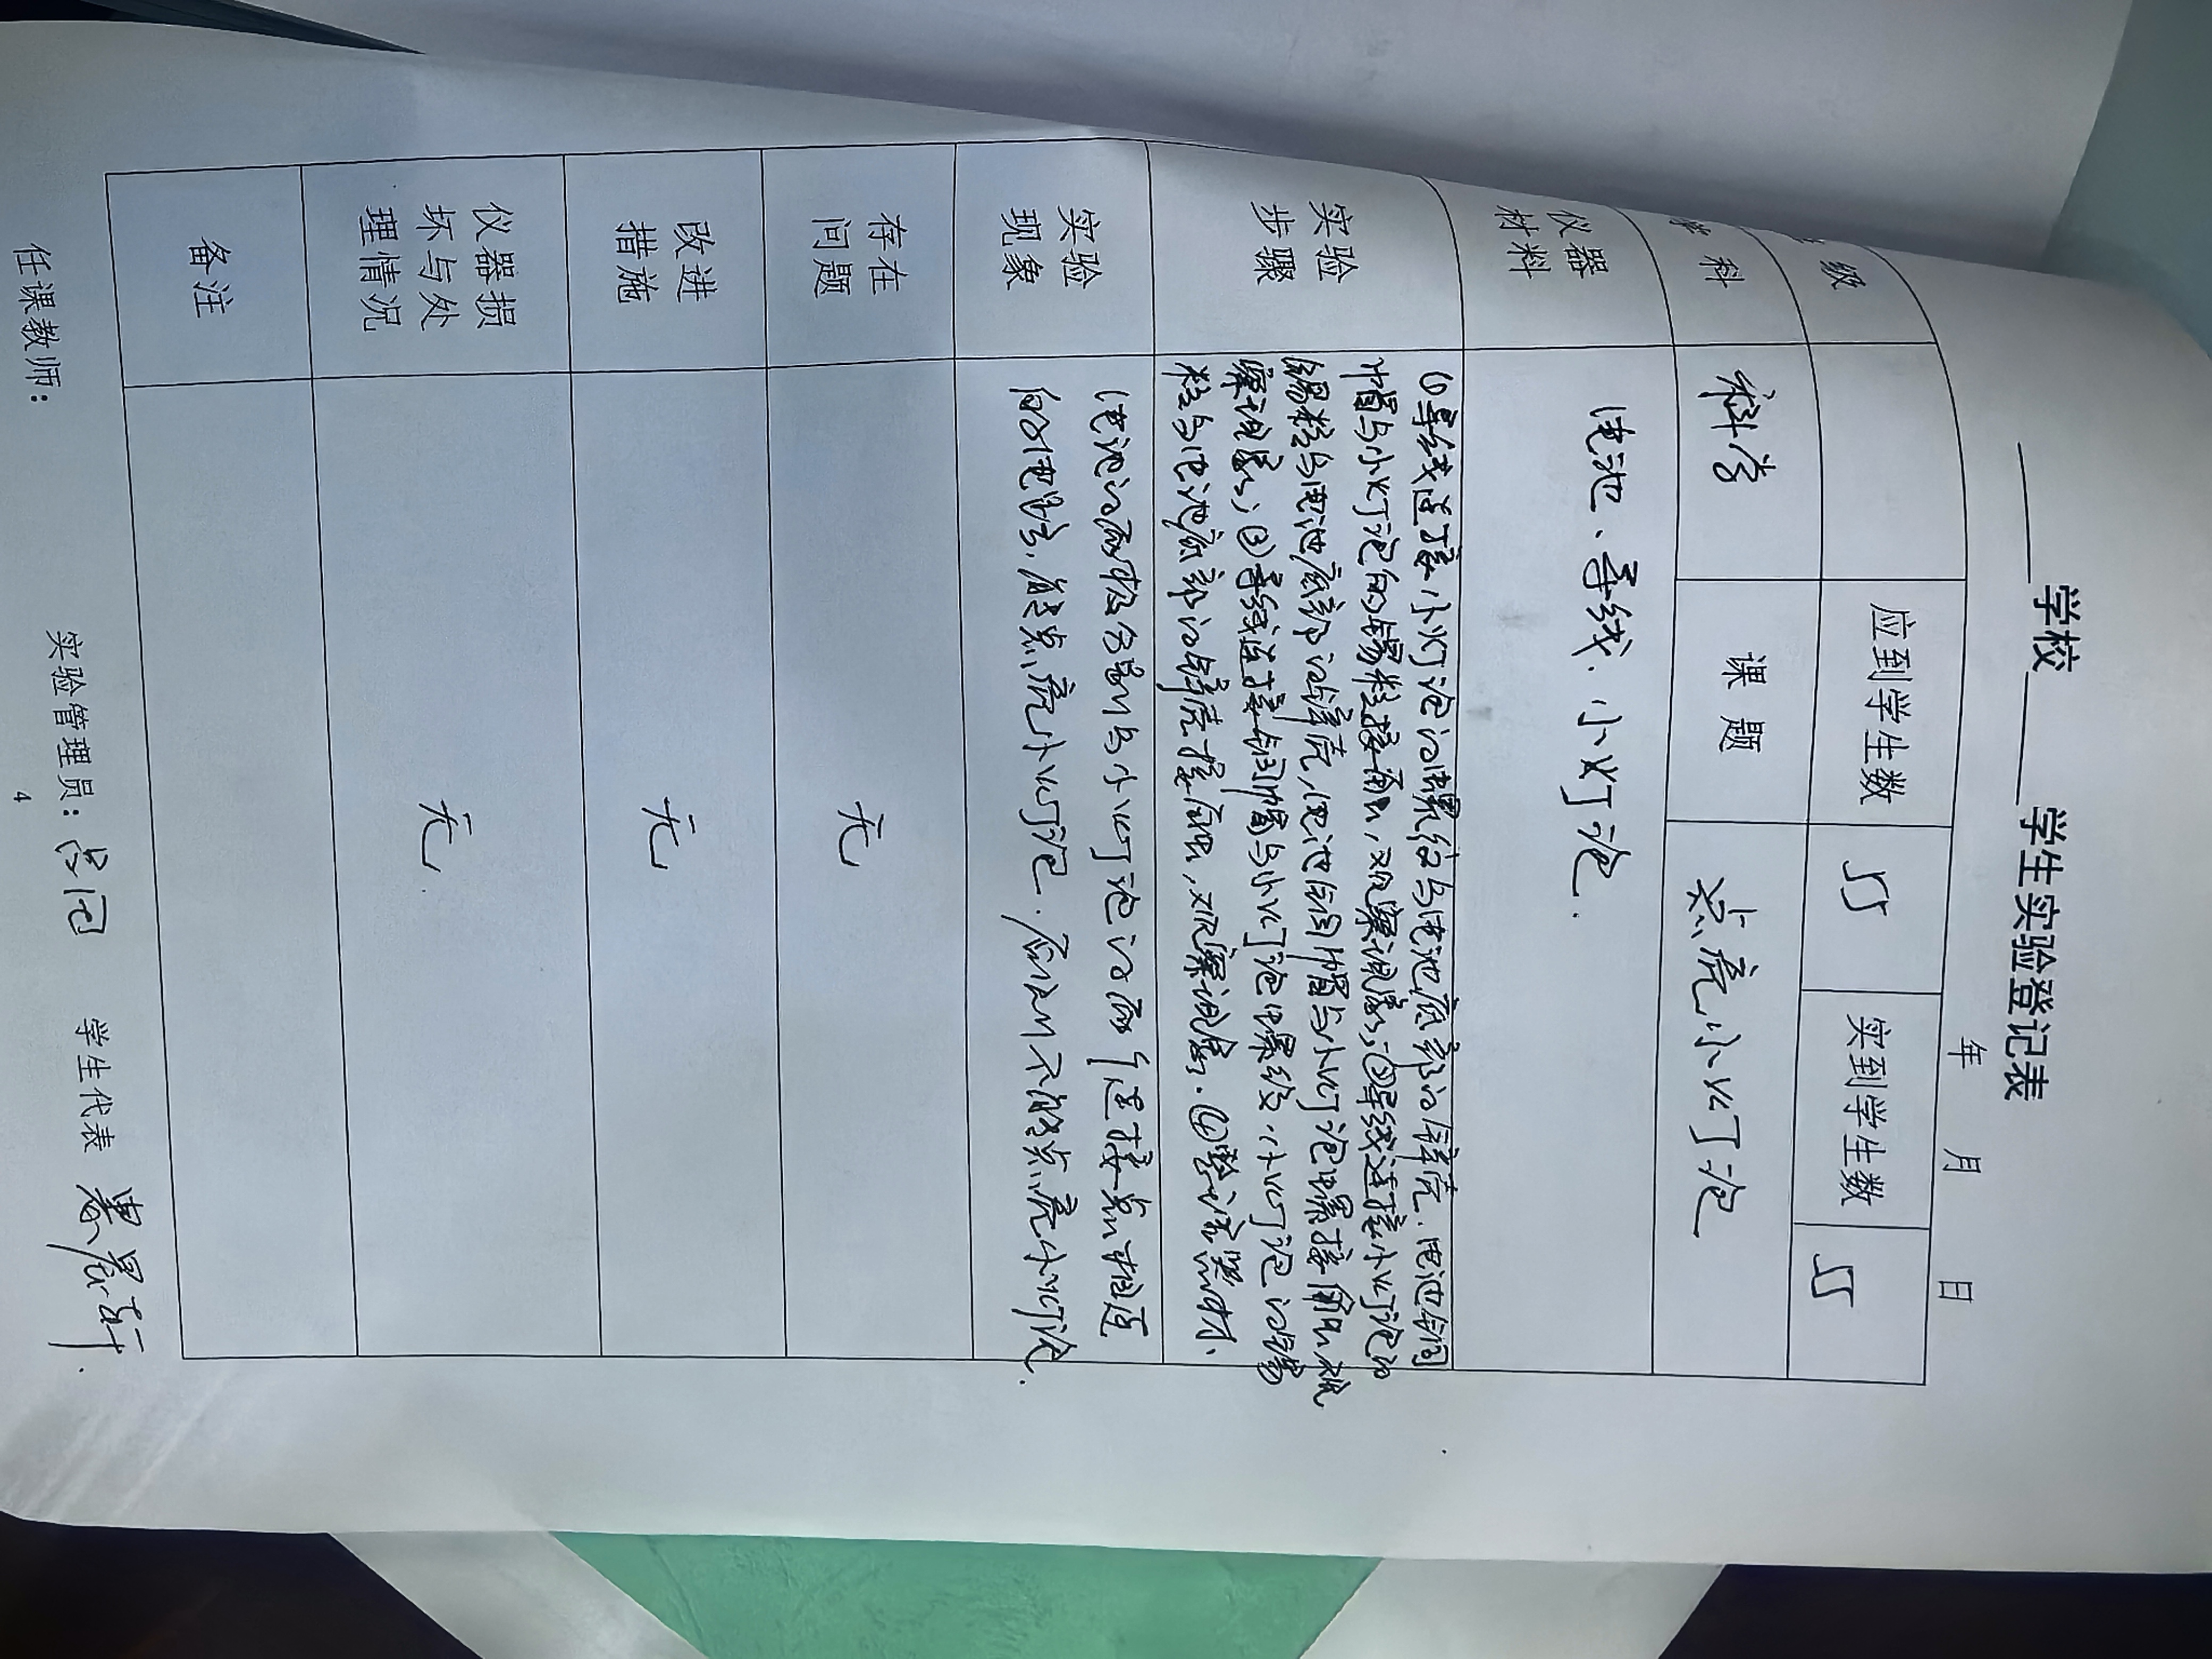 学校 学生实验登记表
年 月 日
级 应到学生数 55 实到学生数 55
科 科学 课题 点亮小灯泡
仪器材料 电池、导线、小灯泡.
实验步骤
①导线连接小灯泡的螺纹与电池底部的锌壳.电池铜
帽与小灯泡的锡粒接触,观察现象;②导线连接小灯泡的
锡粒与电池底部的锌壳,电池铜帽与小灯泡螺接触,观
察现象;③导线连接铜帽与小灯泡螺纹,小灯泡的锡
粒与电池底部的锌壳接触,观察现象.④整理器材.
实验现象
电池的两极分别与小灯泡的两个连接点相连
的电路,能点亮小灯泡. 不能点亮小灯泡.
存在问题 无
改进措施 无
仪器损坏与处理情况 无.
备注
任课教师: 实验管理员: 学生代表
4